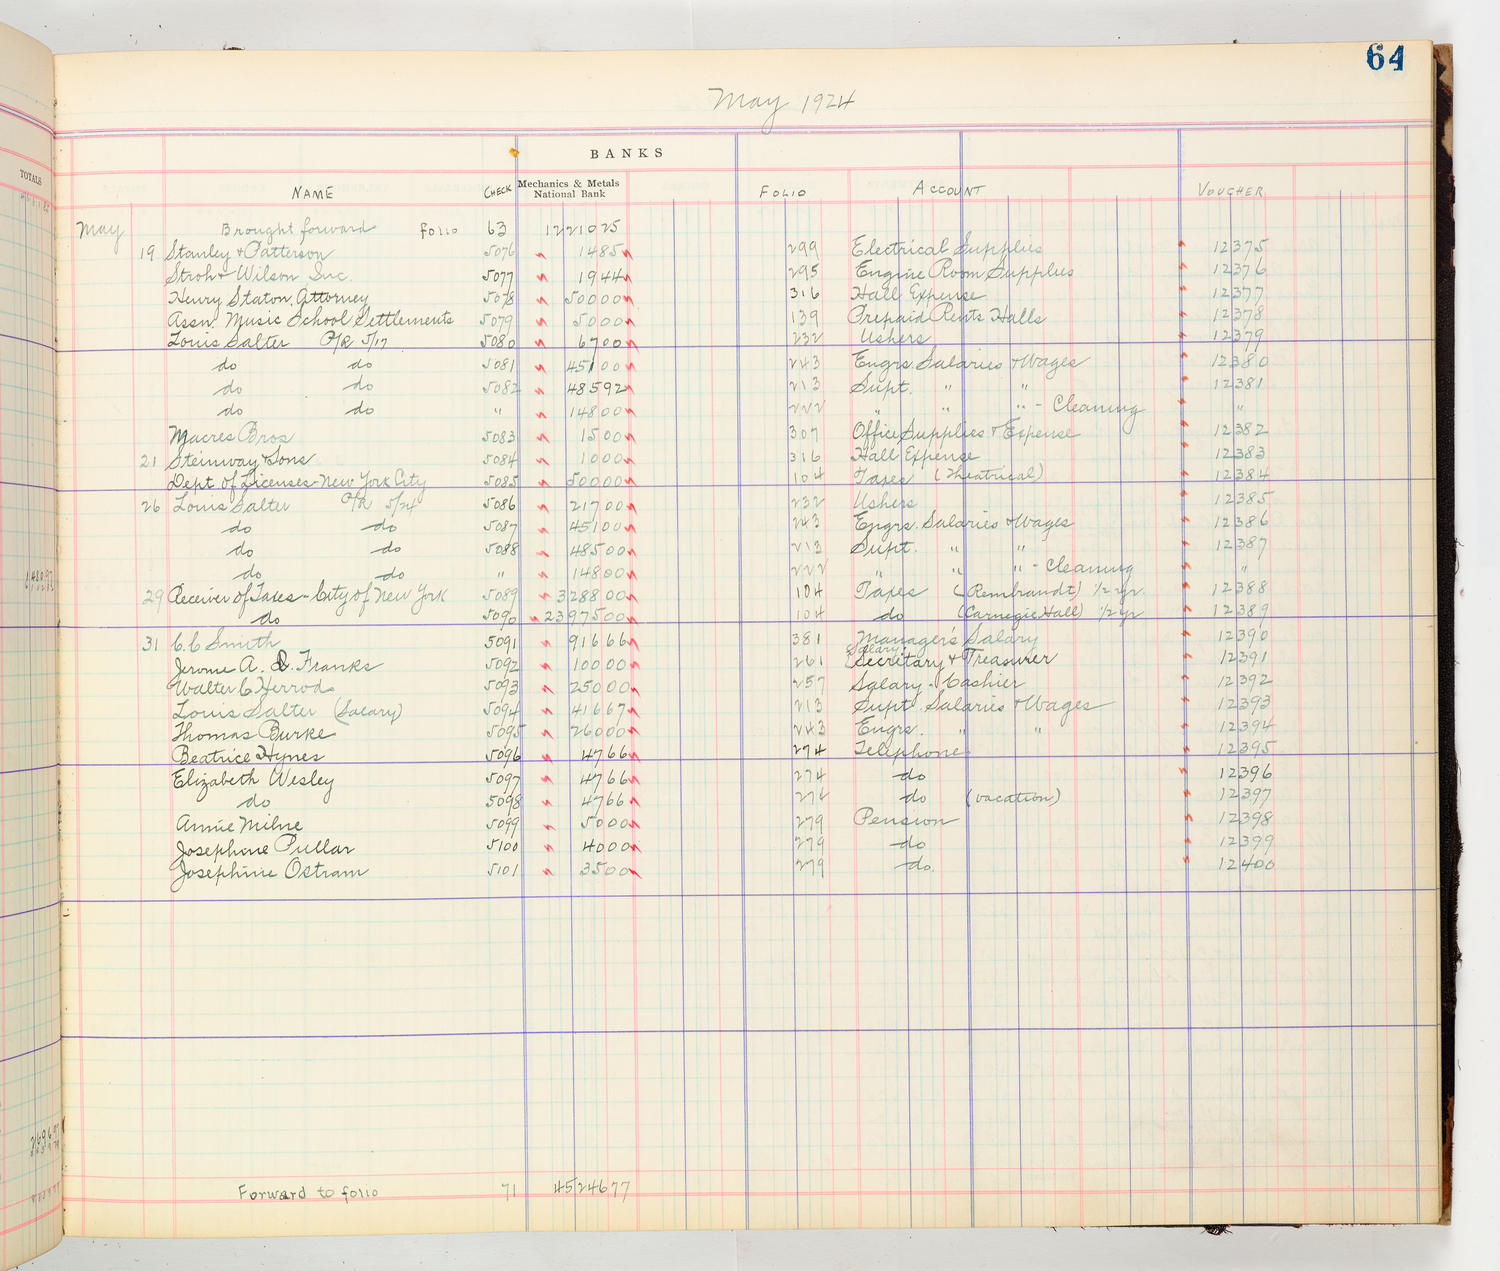 64
May 1924
TOTALS
BANKS
NAME CHECK Mechanics & Metals National Bank FOLIO ACCOUNT VOUCHER
May Brought forward folio 63 1221025
19 Stanley & Patterson 5076 1485 299 Electrical Supplies 12375
Stroh & Wilson Inc. 5077 1944 295 Engine Room Supplies 12376
Henry Staton, Attorney 5078 50000 316 Hall Expense 12377
Assn. Music School Settlements 5079 5000 139 Prepaid Rents Halls 12378
Louis Salter P/R 5/17 5080 6700 232 Ushers 12379
do do 5081 45100 243 Engrs. Salaries & Wages 12380
do do 5082 48592 213 Supt. " " 12381
do do " 14800 222 " " " - Cleaning "
Macres Bros 5083 1500 307 Office Supplies & Expense 12382
21 Steinway & Sons 5084 1000 316 Hall Expense 12383
Dept of Licenses - New York City 5085 50000 104 Taxes (Theatrical) 12384
26 Louis Salter P/R 5/24 5086 21700 232 Ushers 12385
do do 5087 45100 243 Engrs. Salaries & Wages 12386
do do 5088 48500 213 Supt. " " 12387
do do " 14800 222 " " " - Cleaning "
29 Receiver of Taxes - City of New York 5089 328800 104 Taxes (Rembrandt) 1/2 yr. 12388
do 5090 2397500 104 do (Carnegie Hall) 1/2 yr 12389
31 C. C Smith 5091 91666 381 Manager's Salary 12390
Jerome A. Q. Franks 5092 10000 261 Salary Secretary & Treasurer 12391
Walter C Herrod 5093 25000 257 Salary - Cashier 12392
Louis Salter (Salary) 5094 41667 213 Supt. Salaries & Wages 12393
Thomas Burke 5095 26000 243 Engrs. " " 12394
Beatrice Hynes 5096 4766 274 Telephone 12395
Elizabeth Wesley 5097 4766 274 do 12396
do 5098 4766 274 do (vacation) 12397
Annie Milne 5099 5000 279 Pension 12398
Josephine Pullar 5100 4000 279 do 12399
Josephine Ostram 5101 3500 279 do. 12400
Forward to folio 71 4524677